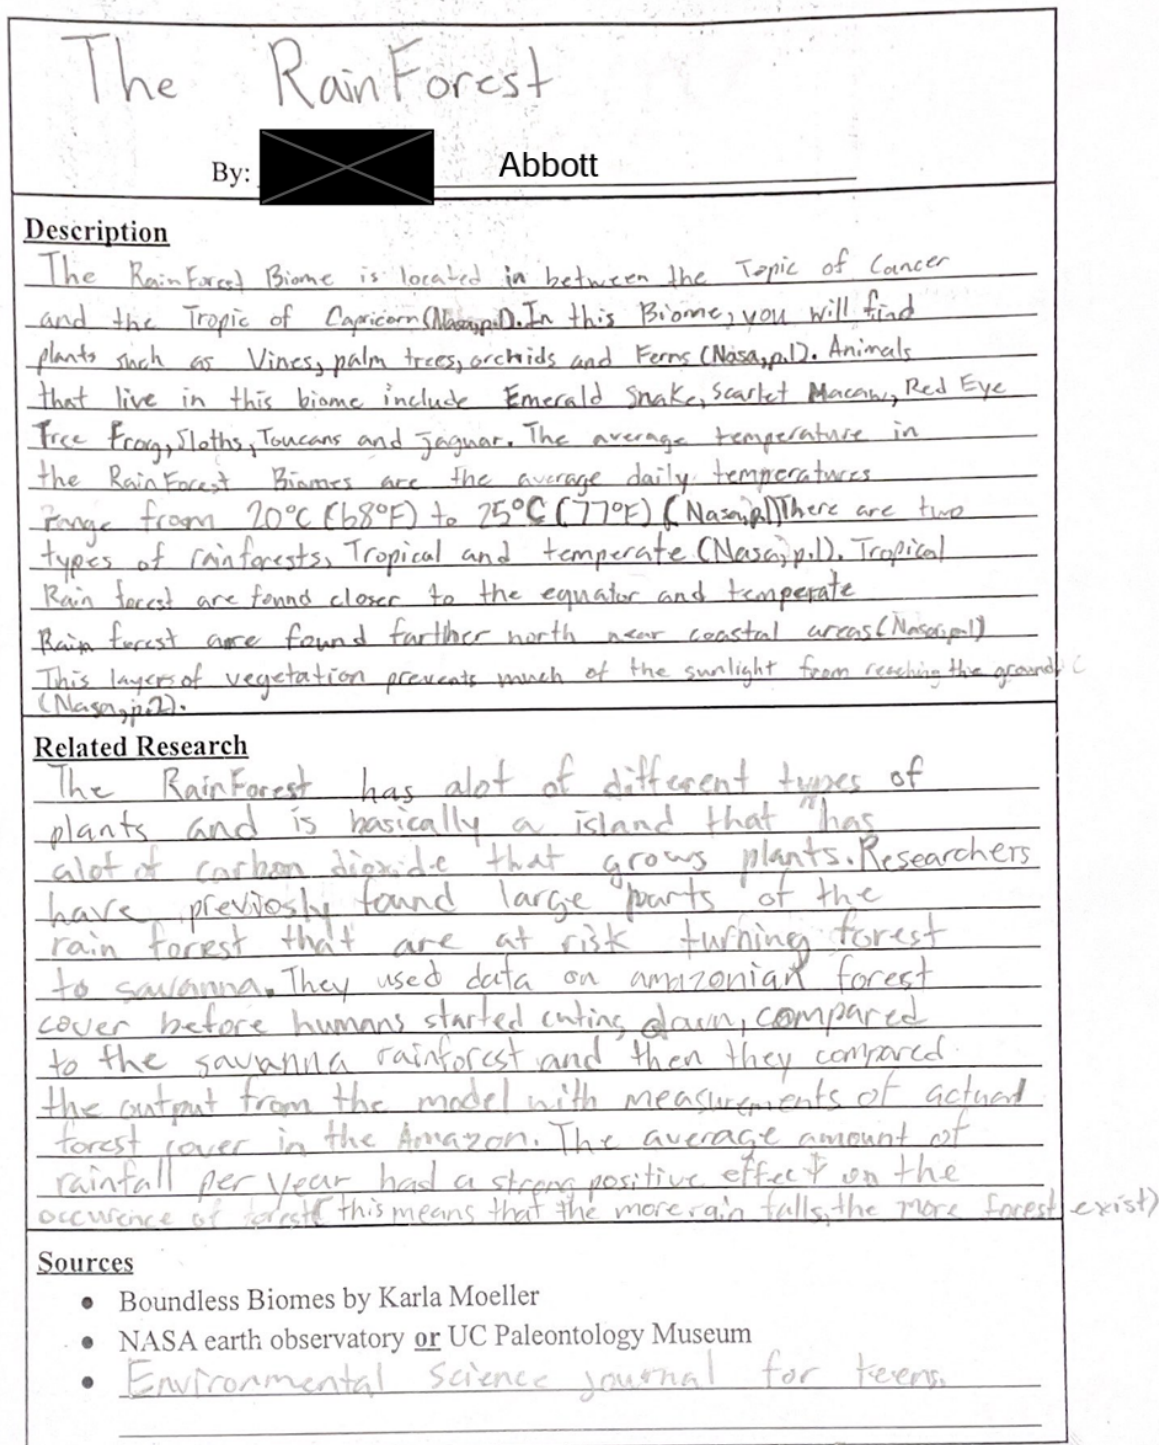 The RainForest
By: Abbott
Description
The RainForest Biome is located in between the Topic of Cancer
and the Tropic of Capricorn (Nasa,p.1). In this Biome, you will find
plants such as Vines, palm trees, orchids and Ferns (Nasa,p.1). Animals
that live in this biome include Emerald Snake, Scarlet Macaw, Red Eye
Tree Frog, Sloths, Toucans and jaguar. The average temperature in
the RainForest Biomes are the average daily temperatures
range from 20°C (68°F) to 25°C (77°F) (Nasa,p.1) There are two
types of rainforests, Tropical and temperate (Nasa,p.1). Tropical
Rain forest are found closer to the equator and temperate
Rain forest are found farther north near coastal areas (Nasa,p.1)
This layers of vegetation prevents much of the sunlight from reaching the ground
(Nasa,p.2).
Related Research
The RainForest has alot of different types of
plants and is basically a island that has
alot of carbon dioxide that grows plants. Researchers
have previosly found large parts of the
rain forest that are at risk turning forest
to savanna. They used data on amizonian forest
cover before humans started cuting down, compared
to the savanna rainforest and then they compared
the output from the model with measurements of actual
forest cover in the Amazon. The average amount of
rainfall per year had a strong positive effect on the
occurence of forest (this means that the more rain falls, the more forest exist)
Sources
• Boundless Biomes by Karla Moeller
• NASA earth observatory or UC Paleontology Museum
• Environmental Science journal for teens.